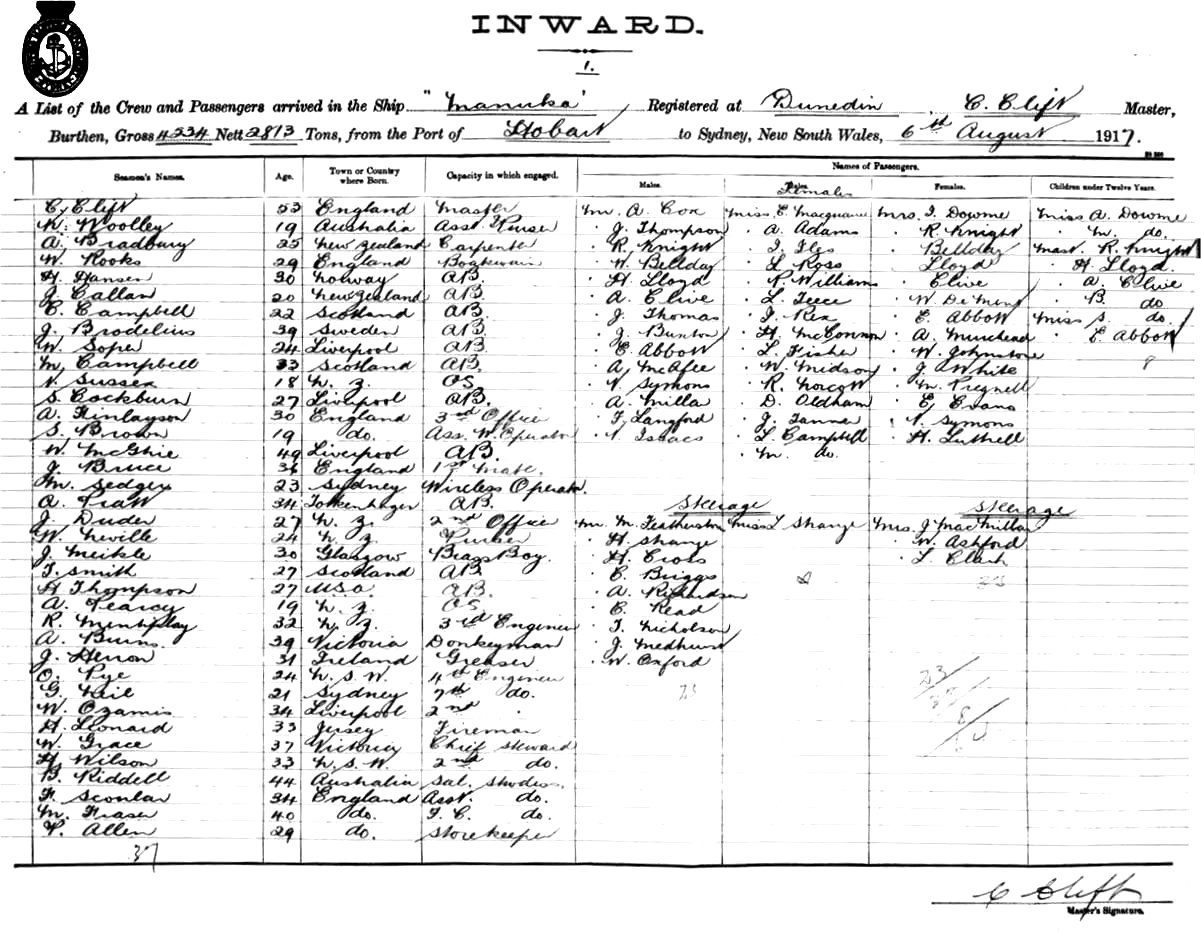 INWARD.
1.
A List of the Crew and Passengers arrived in the Ship "Manuka" Registered at Dunedin, C. Clift Master,
Burthen, Gross 4234 Nett 2813 Tons, from the Port of Hobart to Sydney, New South Wales, 6th August 1917.
Seamen's Names. Age. Town or Country where Born. Capacity in which engaged. Names of Passengers.
Males. Males. Females Females. Children under Twelve Years.
C. Clift 53 England Master Mr. A. Cox Miss E. Macquarie Mrs. I. Dowme Miss A. Dowme
K. Woolley 19 Australia Asst. Purser " J. Thompson " A. Adams " R. Knight " M. do.
A. Bradbury 25 New Zealand Carpenter " R. Knight " I. Iles " Bellday Mast. R. Knight
W. Rooks 29 England Boatswain " W. Bellday " L. Ross " Lloyd " H. Lloyd.
H. Hansen 30 Norway A.B. " H. Lloyd " R. Williams " Clive " A. Clive
J. Callan 20 New Zealand A.B. " A. Clive " L. Teece " W. " B. do
C. Campbell 22 Scotland A.B. " J. Thomas " I. Rex " E. Abbott Miss S. do.
J. Brodelius 39 Sweden A.B. " J. Bunton " H. McConnon " A. Muirhead " E. Abbott
W. Soper 24 Liverpool A.B. " E. Abbott " L. Fisher " W. Johnstone 8
M. Campbell 33 Scotland A.B. " A. McAfee " W. Midson " J. White
N. Sussex 18 N. Z. OS " N. Symons " R. Norcott " M. Pregnell
S. Cockburn 27 Liverpool A.B. " A. Milla " D. Oldham " E. Evans
A. Finlayson 30 England 3rd Office " F. Langford " J. Tanner " N. Symons
S. Brown 19 do. Ass. W. Operator " N. Isaacs " L. Campbell " H. Luttrell
W. McGhie 49 Liverpool A.B. " M. do.
J. Bruce 36 England 1st Mate.
M. Sedgey 23 Sydney Wireless Operator.
A. Pratt 34 A.B. Steerage Steerage
J. Duder 27 N. Z. 2nd Office Mr. M. Featherston Miss L. Strange Mrs. J. MacMillan
W. Neville 24 N. Z. Purser " H. Strange " W. Ashford
J. Meikle 30 Glasgow Brass Boy. " H. Cross " L. Clark
T. Smith 27 Scotland A.B. " C. Briggs
H. Thompson 27 U.S.A. A.B. " A. Richardson
A. Pearcy 19 N. Z. OS " C. Read
R. 32 N. Z. 3rd Engineer " T. Nicholson
A. Burns 39 Victoria Donkeyman " J. Medhurst
J. Heron 31 Ireland Greaser " W. Oxford
O. Pye 24 N. S. W. 4th Engineer
G. 21 Sydney 7th do.
W. Ozamis 34 Liverpool 2nd "
H. Leonard 33 Jersey Fireman
W. Grace 37 Victoria Chief Steward
H. Wilson 33 N. S. W. 2nd do.
B. Riddell 44 Australia Sal. Stwdess.
F. Scoular 34 England Asst. do.
M. Fraser 40 do. F. C. do.
P. Allen 29 do. Storekeeper
37
C Clift
Master's Signature.